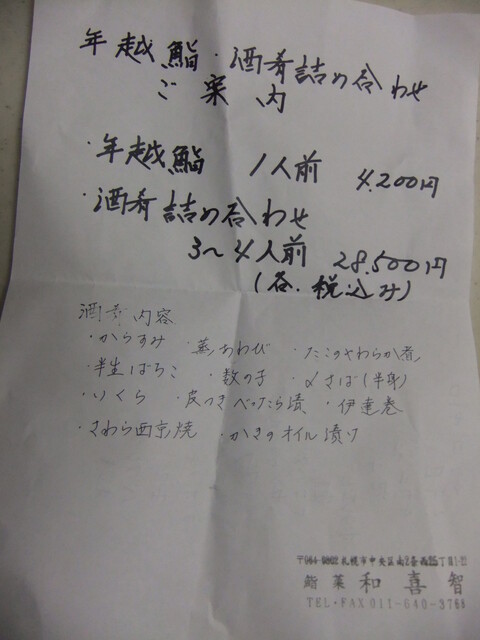 年越鮨・酒肴詰め合わせ
ご案内
・年越鮨 1人前 4.200円
・酒肴詰め合わせ
3〜4人前 28.500円
(各.税込み)
酒肴内容
・からすみ ・蒸あわび ・たこのさわらか煮
・半生ばちこ ・数の子 ・〆さば(半身)
・いくら ・皮つきべったら漬 ・伊達巻
・さわら西京焼 ・かきのオイル漬け
〒064-0802札幌市中央区南2条西25丁目1-22
鮨菜 和喜智
TEL・FAX 011-640-3768